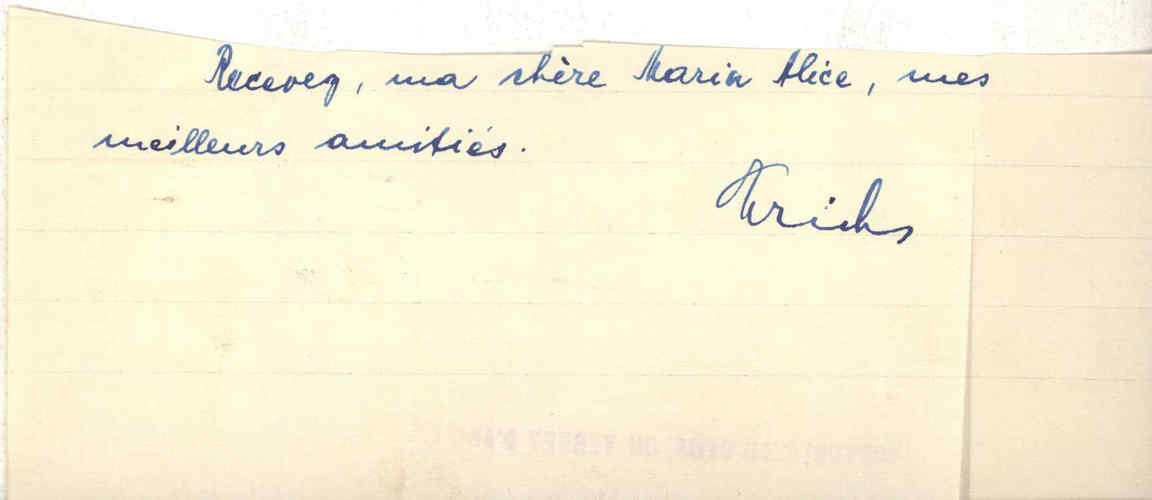 Recevez, ma chère Maria Alice, mes
meilleurs amitiés.